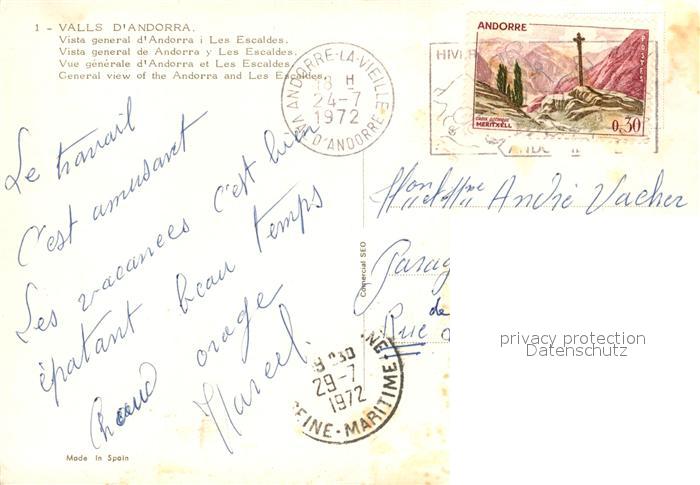 1 - VALLS D'ANDORRA.
Vista general d'Andorra i Les Escaldes.
Vista general de Andorra y Les Escaldes.
Vue générale d'Andorra et Les Escaldes.
General view of the Andorra and Les Escaldes.
Le travail
c'est amusant
Les vacances c'est bien
épatant beau temps
Chaud orage
Marcel.
Made in Spain
Comercial SEO
ANDORRE-LA-VIEILLE
18 H
24-7
1972
VAL D'ANDORRE
ANDORRE
POSTES
CROIX GOTHIQUE
MERITXELL
0,30
Mon et Mme André Vacher
Garag
de
Rue
29-7
1972
SEINE-MARITIME
privacy protection
Datenschutz